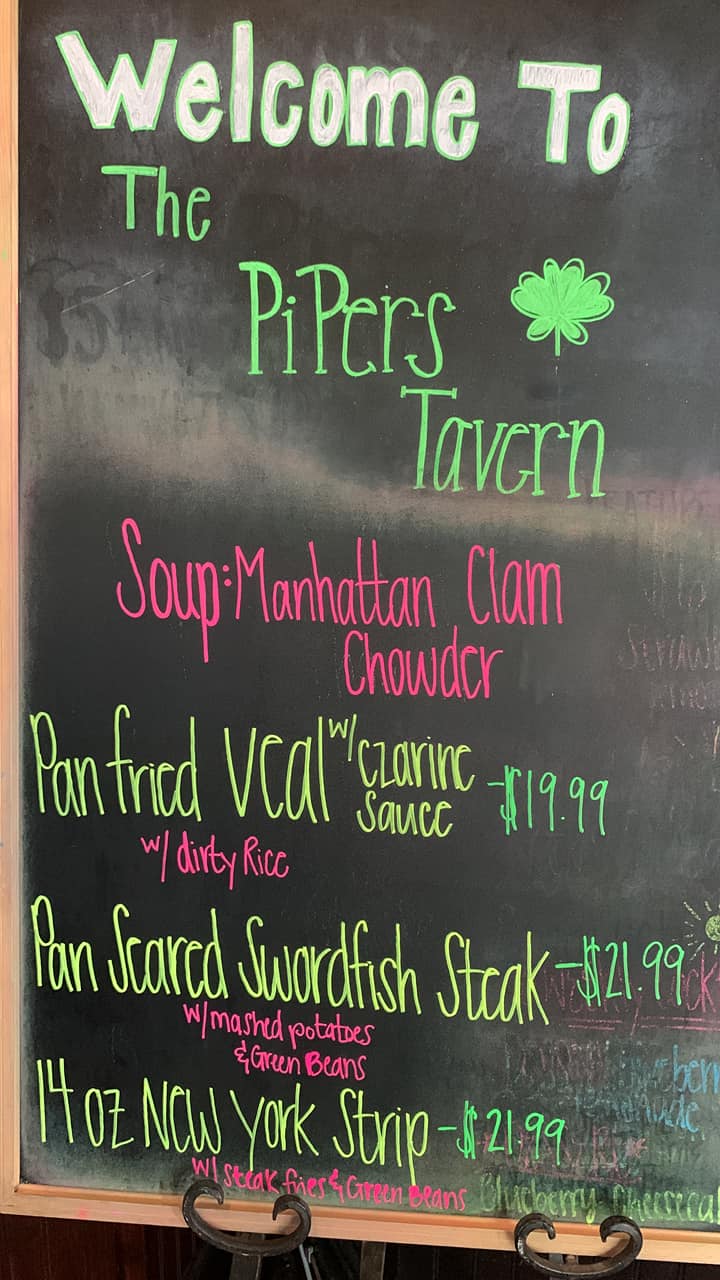 Welcome To
The
PiPers
Tavern
Soup: Manhattan Clam
Chowder
Pan fried Veal w/ czarine
sauce -$19.99
w/ dirty Rice
Pan Seared Swordfish Steak -$21.99
w/ mashed potatoes
& Green Beans
14 oz New York Strip -$21.99
w/ steak fries & Green Beans
Blueberry